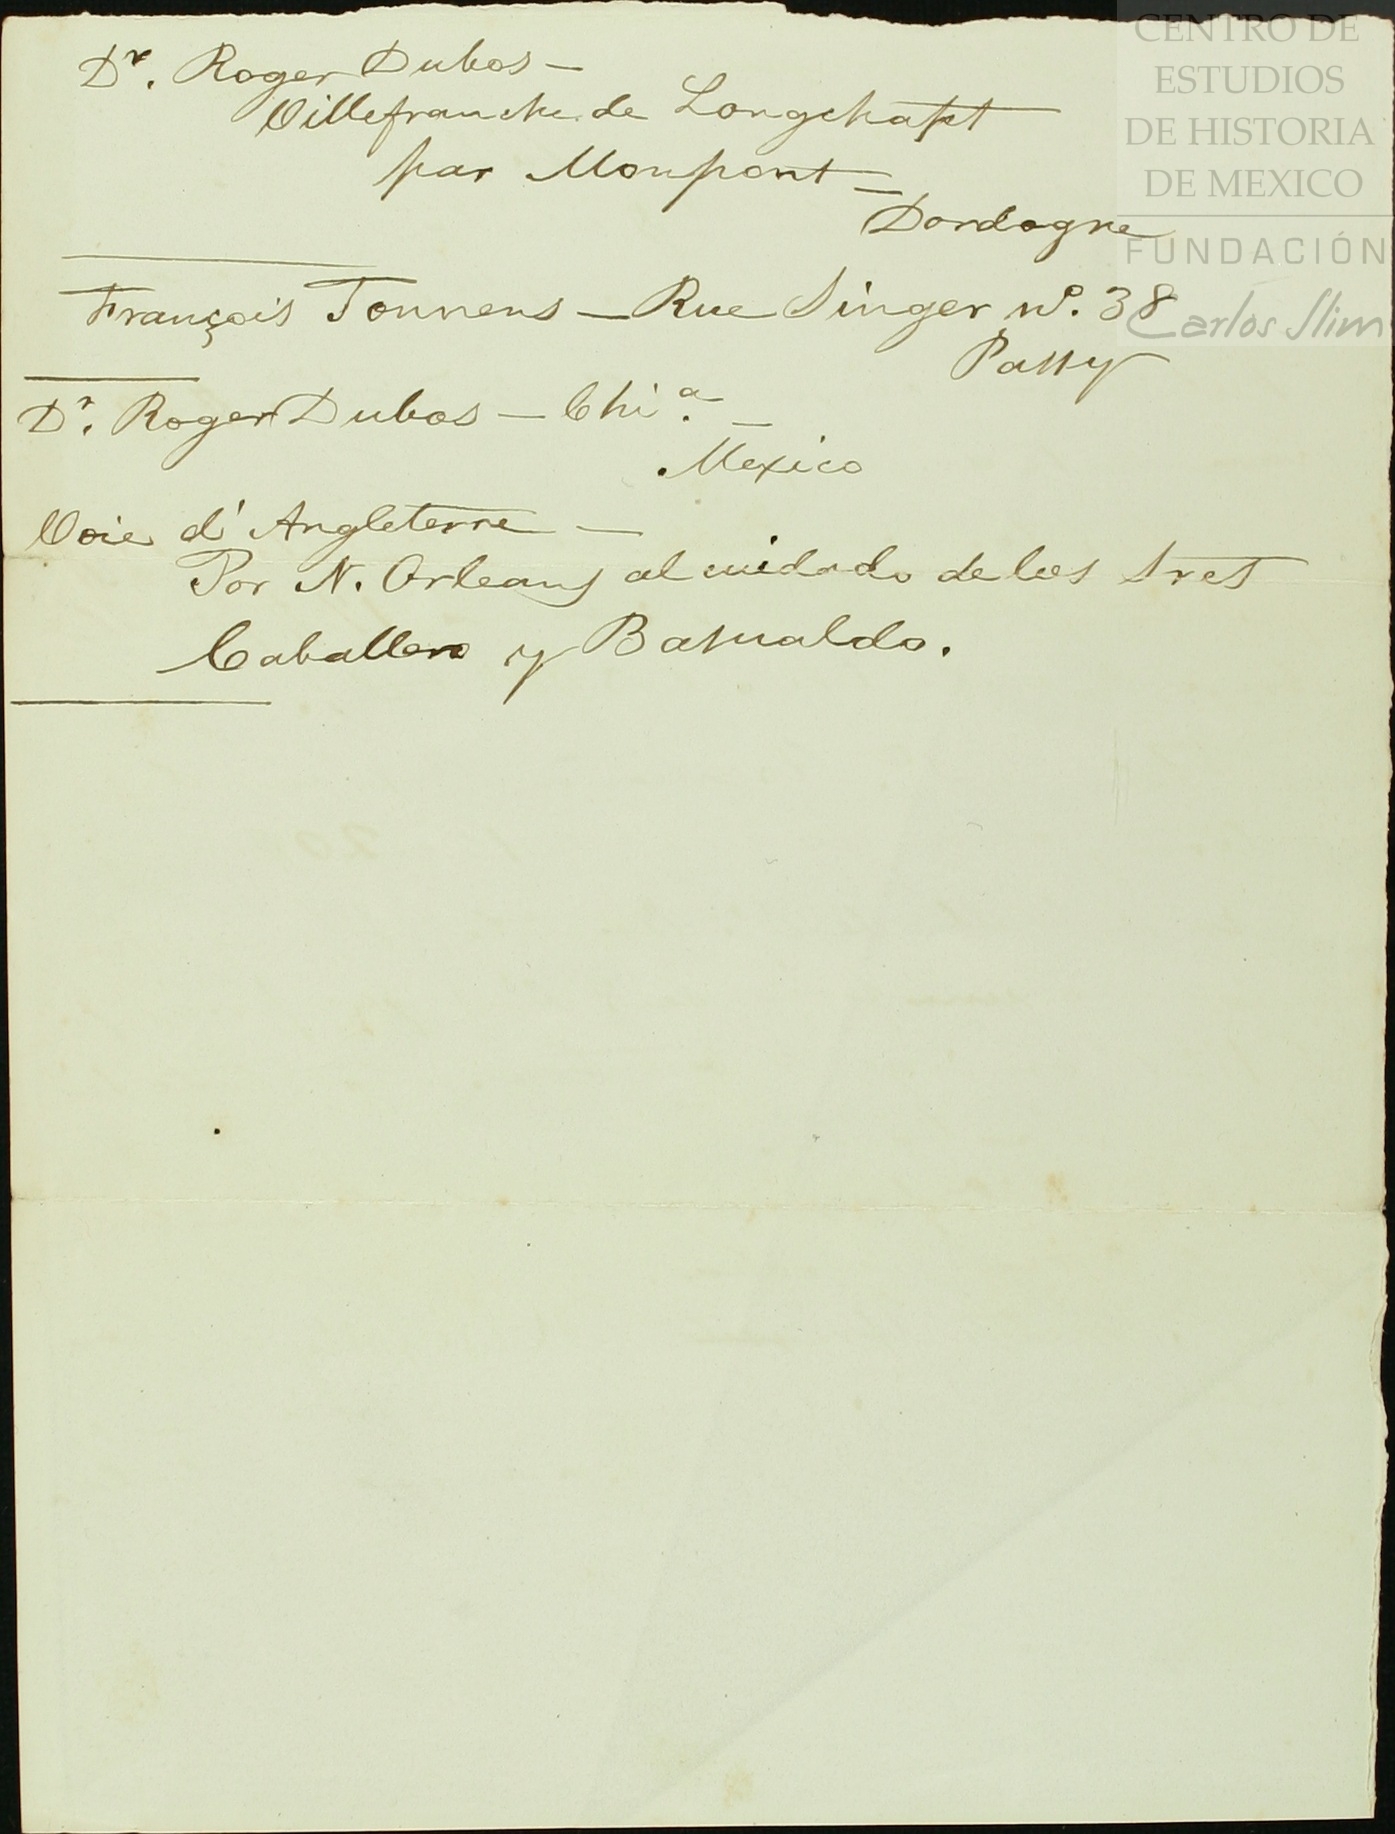 Dr. Roger Dubos —
Villefranche de Longchapt
par Monpont —
Dordogne
François Tounens — Rue Singer nº. 38
Passy
Dr. Roger Dubos — Chi.ª —
Mexico
Voie d'Angleterre —
Por N. Orleans al cuidado de los Sres
Caballero y Basualdo.
CENTRO DE
ESTUDIOS
DE HISTORIA
DE MEXICO
FUNDACIÓN
Carlos Slim